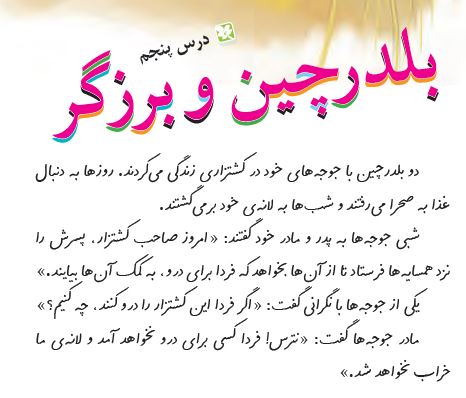 درس پنجم
بلدرچین و برزگر
دو بلدرچین با جوجه‌های خود در کشتزاری زندگی می‌کردند. روزها به دنبال
غذا به صحرا می‌رفتند و شب‌ها به لانه‌ی خود برمی‌گشتند.
شبی جوجه‌ها به پدر و مادر خود گفتند: «امروز صاحب کشتزار، پسرش را
نزد همسایه‌ها فرستاد تا از آن‌ها بخواهد که فردا برای درو، به کمک آن‌ها بیایند.»
یکی از جوجه‌ها با نگرانی گفت: «اگر فردا این کشتزار را درو کنند، چه کنیم؟»
مادر جوجه‌ها گفت: «نترس! فردا کسی برای درو نخواهد آمد و لانه‌ی ما
خراب نخواهد شد.»